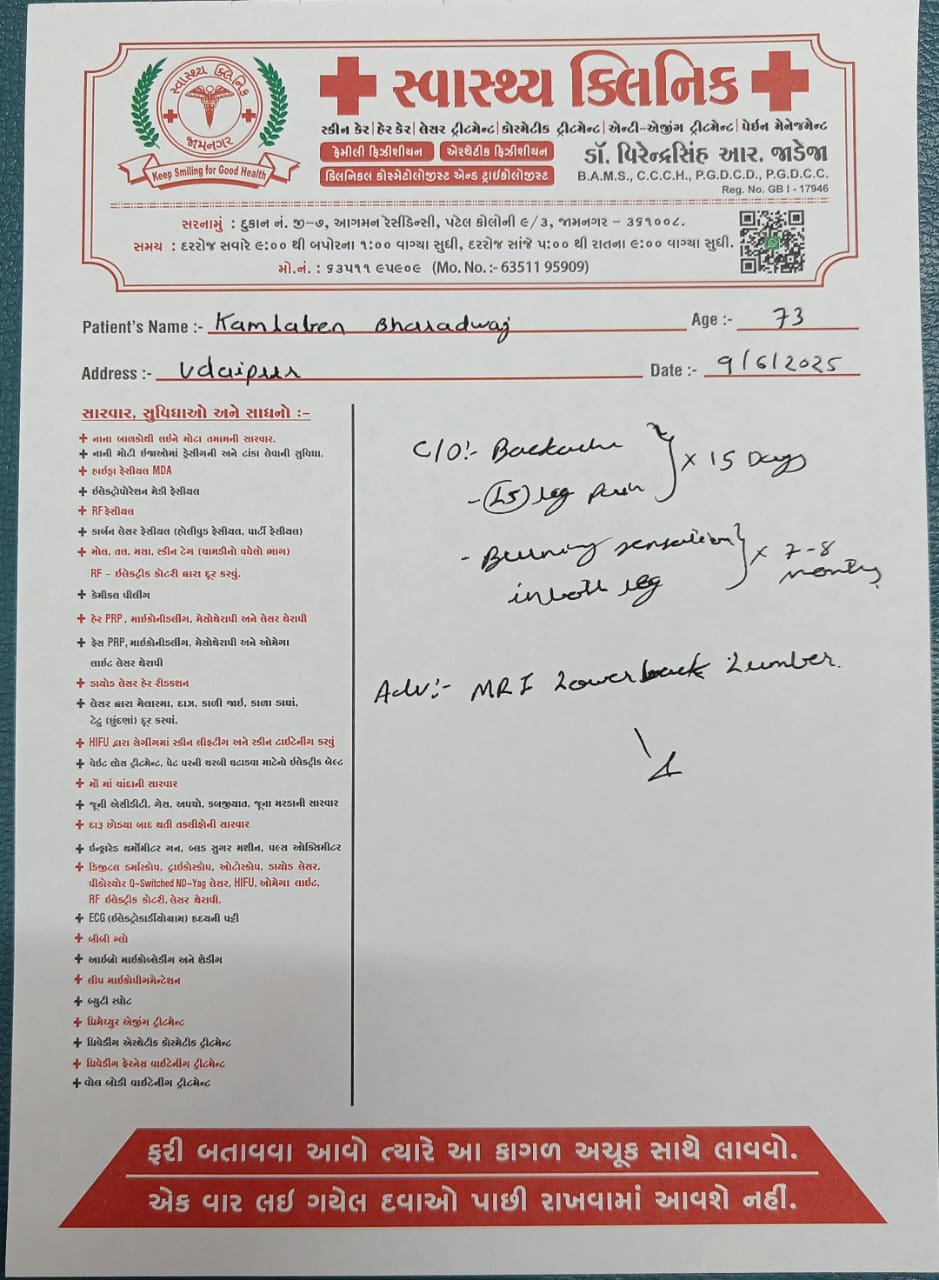 સ્વાસ્થ્ય ક્લિનિક
જામનગર
Keep Smiling for Good Health
સ્વાસ્થ્ય ક્લિનિક
સ્કીન કેર | હેર કેર | લેસર ટ્રીટમેન્ટ | કોસ્મેટીક ટ્રીટમેન્ટ | એન્ટી-એજીંગ ટ્રીટમેન્ટ | પેઇન મેનેજમેન્ટ
ફેમીલી ફિઝીશીયન એસ્થેટીક ફિઝીશીયન
ક્લિનિકલ કોસ્મેટોલોજીસ્ટ એન્ડ ટ્રાઇકોલોજીસ્ટ
ડૉ. વિરેન્દ્રસિંહ આર. જાડેજા
B.A.M.S., C.C.C.H., P.G.D.C.D., P.G.D.C.C.
Reg. No. GB I - 17946
સરનામું : દુકાન નં. જી-૭, આગમન રેસીડેન્સી, પટેલ કોલોની ૯/૩, જામનગર - ૩૬૧૦૦૮.
સમય : દરરોજ સવારે ૯:૦૦ થી બપોરના ૧:૦૦ વાગ્યા સુધી, દરરોજ સાંજે ૫:૦૦ થી રાતના ૯:૦૦ વાગ્યા સુધી.
મો.નં. : ૬૩૫૧૧ ૯૫૯૦૯ (Mo. No. :- 63511 95909)
Patient's Name :- Kamlaben Bharadwaj Age :- 73
Address :- Udaipur Date :- 9/6/2025
સારવાર, સુવિધાઓ અને સાધનો :-
+ નાના બાળકોથી લઇને મોટા તમામની સારવાર.
+ નાની મોટી ઇજાઓમાં ડ્રેસીંગની અને ટાંકા લેવાની સુવિધા.
+ હાઇડ્રા ફેસીયલ MDA
+ ઇલેક્ટ્રોપોરેશન મેડી ફેસીયલ
+ RF ફેસીયલ
+ કાર્બન લેસર ફેસીયલ (હોલીવુડ ફેસીયલ, પાર્ટી ફેસીયલ)
+ મોલ, તલ, મસા, સ્કીન ટેગ (ચામડીનો વધેલો ભાગ)
RF - ઇલેક્ટ્રીક કોટરી દ્વારા દૂર કરવું.
+ કેમીકલ પીલીંગ
+ હેર PRP, માઇક્રોનીડલીંગ, મેસોથેરાપી અને લેસર થેરાપી
+ ફેસ PRP, માઇક્રોનીડલીંગ, મેસોથેરાપી અને ઓમેગા
લાઇટ લેસર થેરાપી
+ ડાયોડ લેસર હેર રીડક્શન
+ લેસર દ્વારા મેલાસ્મા, દાઝ, કાળી જાઇ, કાળા ડાઘાં,
ટેટુ (છુંદણાં) દૂર કરવાં.
+ HIFU દ્વારા સેગીંગમાં સ્કીન લીફ્ટીંગ અને સ્કીન ટાઇટેનીંગ કરવું
+ વેઇટ લોસ ટ્રીટમેન્ટ, પેટ પરની ચરબી ઘટાડવા માટેનો ઇલેક્ટ્રીક બેલ્ટ
+ મોં માં ચાંદાની સારવાર
+ જૂની એસીડીટી, ગેસ, અપચો, કબજીયાત, જૂના મરડાની સારવાર
+ દારૂ છોડ્યા બાદ થતી તકલીફોની સારવાર
+ ઇન્ફ્રારેડ થર્મોમીટર ગન, બ્લડ સુગર મશીન, પલ્સ ઓક્સિમીટર
+ ડિજીટલ ડર્માસ્કોપ, ટ્રાઇકોસ્કોપ, ઓટોસ્કોપ, ડાયોડ લેસર,
પીકોસ્યોર Q-Switched ND-Yag લેસર, HIFU, ઓમેગા લાઇટ,
RF ઇલેક્ટ્રીક કોટરી, લેસર થેરાપી.
+ ECG (ઇલેક્ટ્રોકાર્ડીયોગ્રામ) હૃદયની પટ્ટી
+ બીબી ગ્લો
+ આઇબ્રો માઇક્રોબ્લેડીંગ અને શેડીંગ
+ લીપ માઇક્રોપીગમેન્ટેશન
+ બ્યુટી સ્પોટ
+ પ્રિમેચ્યુર એજીંગ ટ્રીટમેન્ટ
+ પ્રિવેડીંગ એસ્થેટીક કોસ્મેટીક ટ્રીટમેન્ટ
+ પ્રિવેડીંગ ફેરનેસ વાઇટેનીંગ ટ્રીટમેન્ટ
+ વોલ બોડી વાઇટેનીંગ ટ્રીટમેન્ટ
C/O:- Backache
- leg pain } x 15 Days
- Burning sensation
in both leg } x 7-8 months
Adv:- MRI Lower back Lumber.
ફરી બતાવવા આવો ત્યારે આ કાગળ અચૂક સાથે લાવવો.
એક વાર લઇ ગયેલ દવાઓ પાછી રાખવામાં આવશે નહીં.